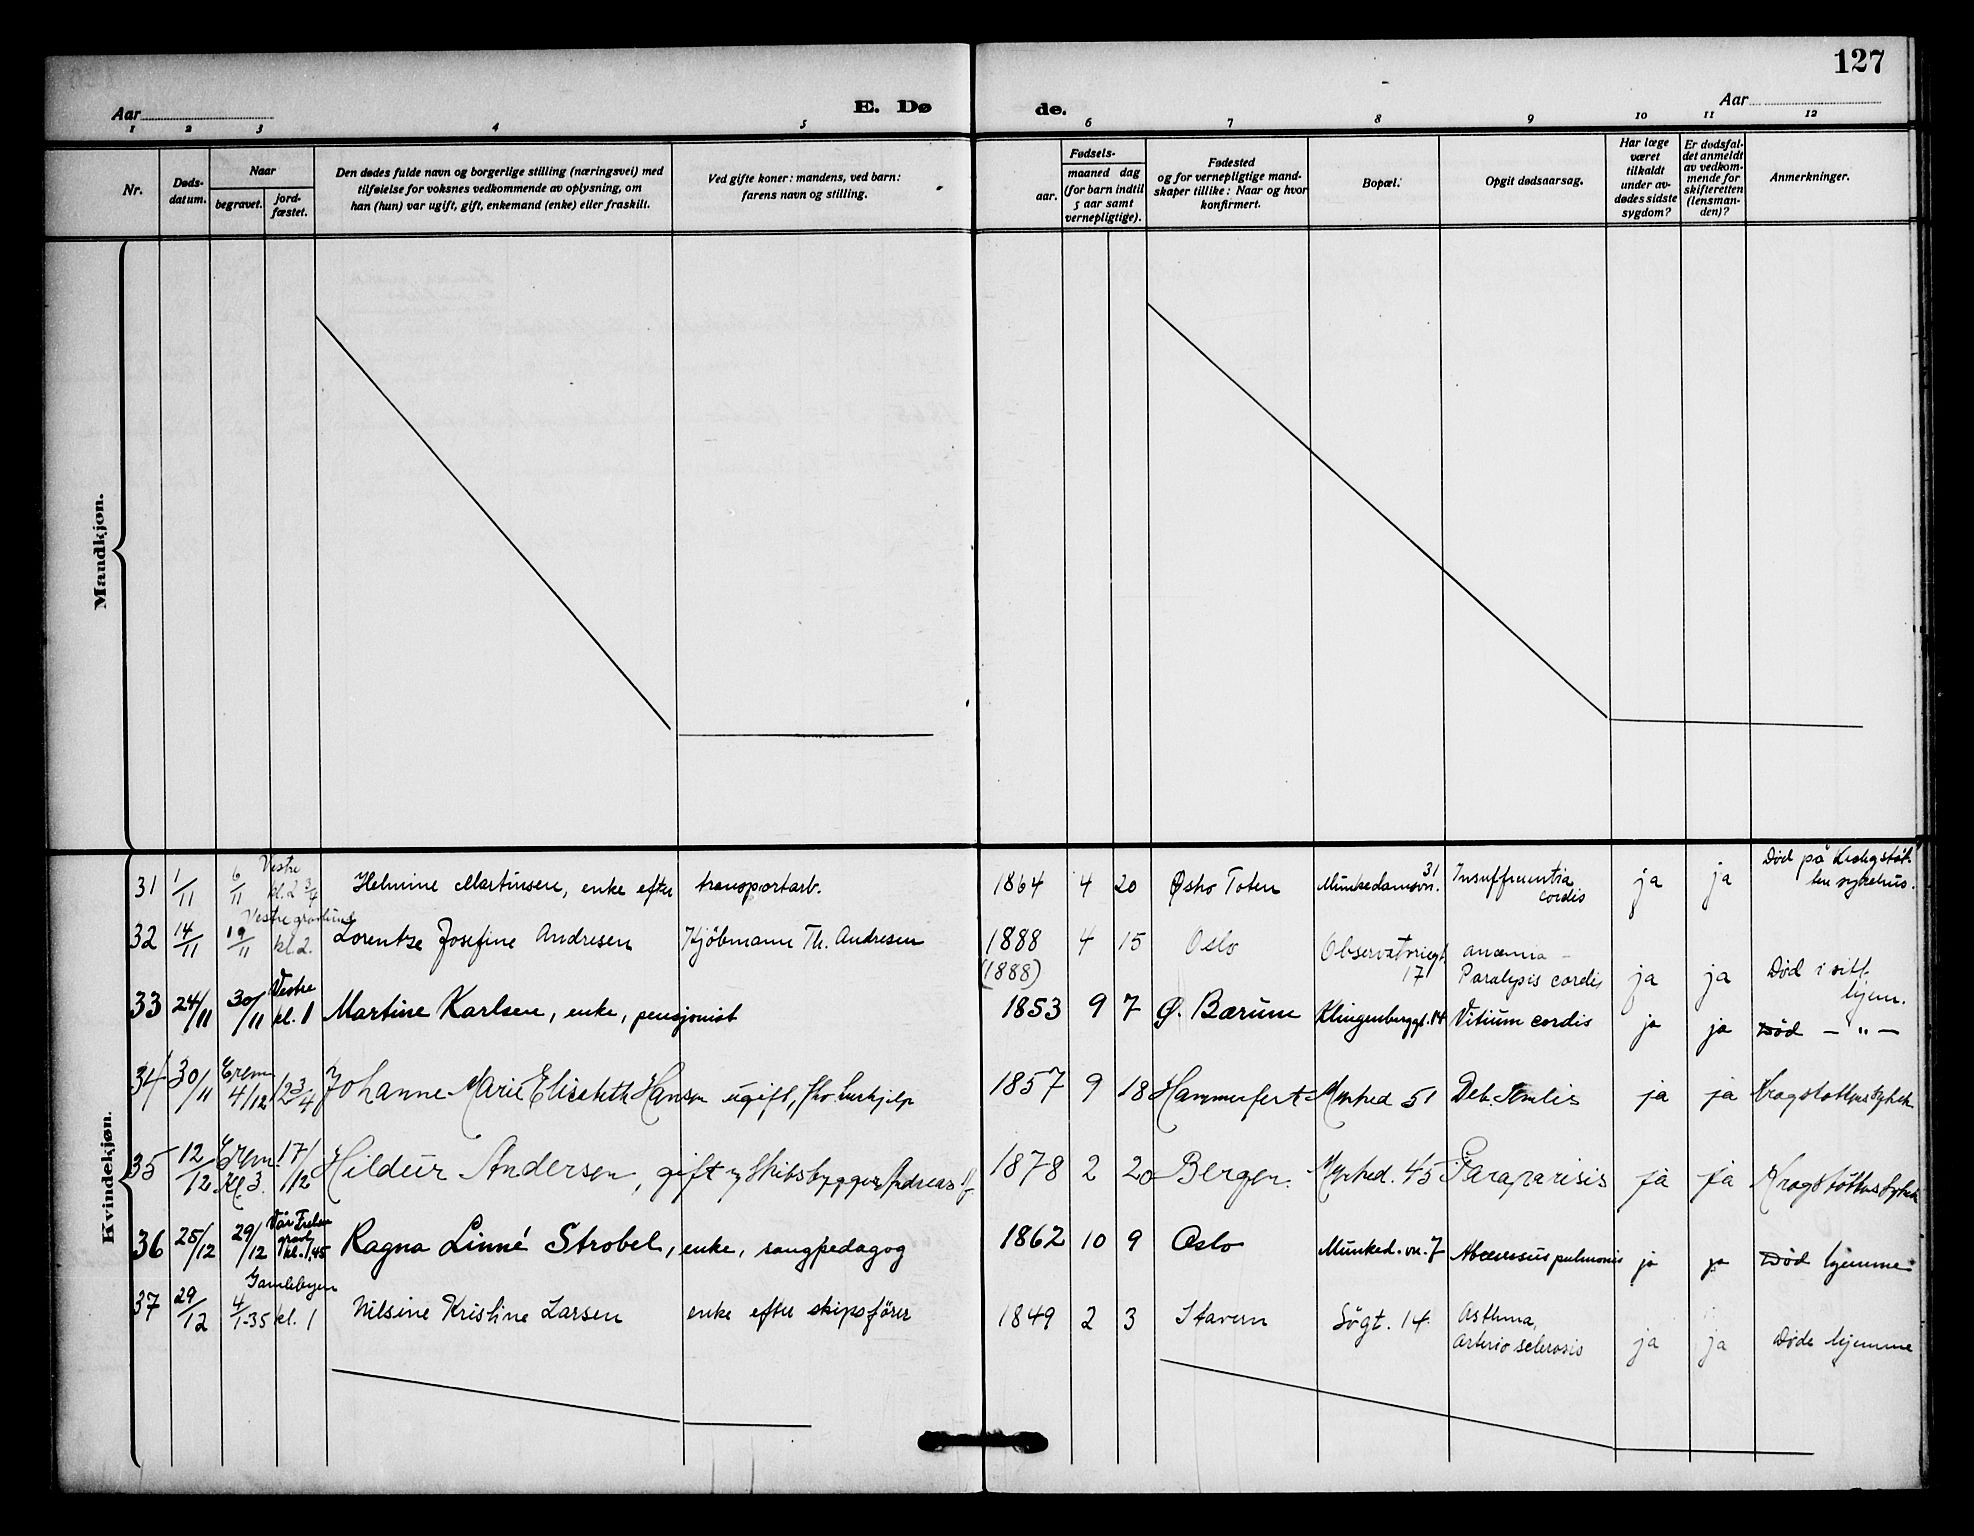 127
Aar
E. Dø
de.
Aar
1 2 3 4 5 6 7 8 9 10 11 12
Nr.
Døds-
datum.
Naar
begravet.
jord-
fæstet.
Den dødes fulde navn og borgerlige stilling (næringsvei) med
tilføielse for voksnes vedkommende av oplysning, om
han (hun) var ugift, gift, enkemand (enke) eller fraskilt.
Ved gifte koner: mandens, ved barn:
farens navn og stilling.
Fødsels-
aar.
maaned dag
(for barn indtil
5 aar samt
vernepligtige).
Fødested
og for vernepligtige mand-
skaper tillike: Naar og hvor
konfirmert.
Bopæl.
Opgit dødsaarsag.
Har læge
været
tilkaldt
under av-
dødes sidste
sygdom?
Er dødsfal-
det anmeldt
av vedkom-
mende for
skifteretten
(lensman-
den)?
Anmerkninger.
Mandkjøn.
Kvindekjøn.
31 1/11 6/11 Vestre kl. 2 3/4 Helmine Martinsen, enke efter transportarb. 1864 4 20 Østo Toten Munkedamsvn. 31 Insuffisientia cordis ja ja Død på
32 14/11 19/11 Vestre gravlund kl. 2. Lorentze Josefine Andresen Kjøbmann Th. Andresen 1888 (1888) 4 15 Oslo Observatoriegt. 17 anæmia - Paralysis cordis ja ja Død i sitt hjem.
33 24/11 30/11 Vestre kl. 1 Martine Karlsen, enke, pensjonist 1853 9 7 Ø. Bærum Klingenberggt. 14 Vitium cordis ja ja Død — " —
34 30/11 Crem 4/12 12 3/4 Johanne Marie Elisabeth Hansen ugift, hushjelp 1857 9 18 Hammerfest Munked 51 Deb. senilis ja ja
35 12/12 Crem. Kl 3. 17/12 Hildur Andersen, gift m Skibsbygger Andreas A 1878 2 20 Bergen. Munked. 45 Paraparisis ja ja
36 25/12 29/12 Vår Frelse gravl kl. 1,45 Ragna Linné Strobel, enke, sangpedagog 1862 10 9 Oslo Munked. vn. 7 Abcessus pulmonis ja ja Død hjemme
37 29/12 4/1-35 Gamlebyen kl. 1 Nilsine Kristine Larsen enke efter skipsfører 1849 2 3 Stavern Søgt. 14 Asthma, Arterio sclerosis ja ja Døde hjemme